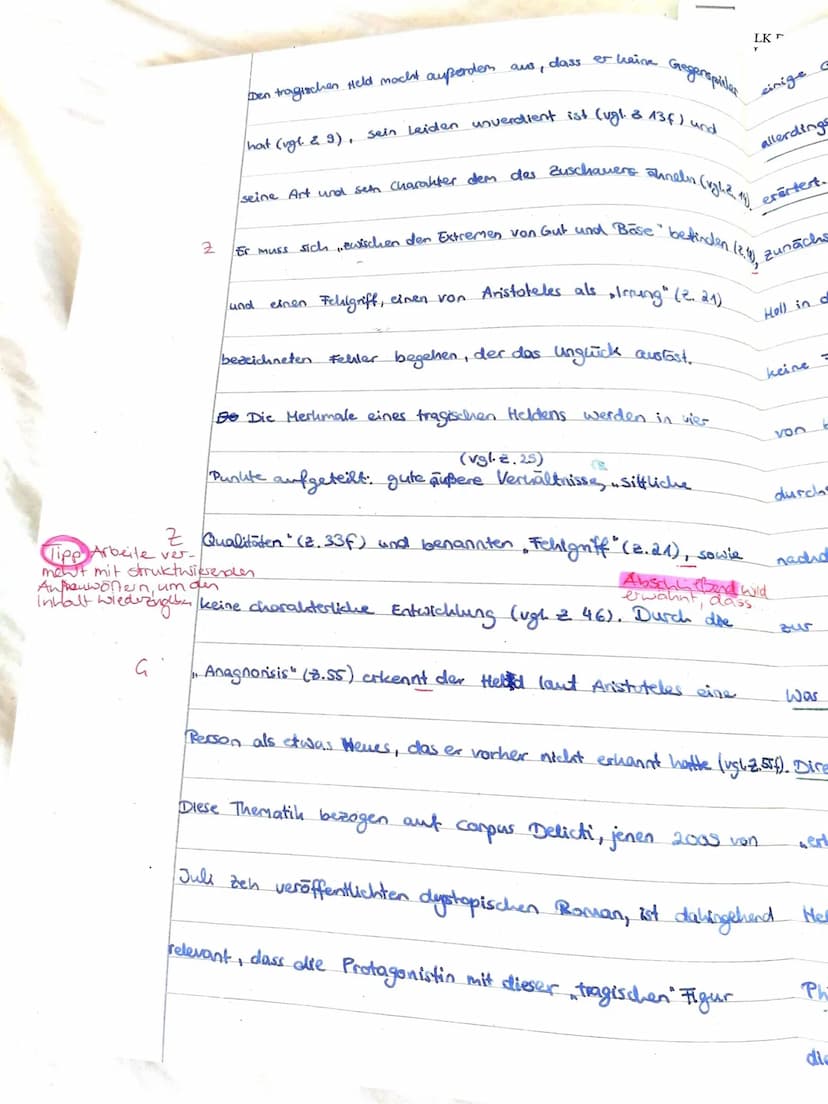 LK
Den tragischen Held macht außerdem aus, dass er keine Gegenspieler
hat (vgl. Z 9), sein Leiden unverdient ist (vgl. Z 13f) und
seine Art und sein Charakter dem des Zuschauers ähneln (vgl. Z. 14).
Z Er muss sich „zwischen den Extremen von Gut und Böse" befinden
und einen Fehlgriff, einen von Aristoteles als „Irrung" (Z. 21)
bezeichneten Fehler begehen, der das Unglück auslöst.
Die Merkmale eines tragischen Heldens werden in vier
(vgl. Z. 25)
Punkte aufgeteilt: gute äußere Verhältnisse, „sittliche
Z Qualitäten" (Z. 33f) und benannten „Fehlgriff" (Z. 21), sowie
Tipp Arbeite ver-
mehrt mit
um den
Inhalt
Abschließend wird
erwähnt, dass
keine charakterliche Entwicklung (vgl. Z 46). Durch die
G „Anagnorisis" (Z. 55) erkennt der Held laut Aristoteles eine
Person als etwas Neues, das er vorher nicht erkannt hatte (vgl. Z. 55f).
Diese Thematik bezogen auf Corpus Delicti, jenen 2009 von
Juli Zeh veröffentlichten dystopischen Roman, ist dahingehend
relevant, dass die Protagonistin mit dieser „tragischen" Figur
einige
allerdings
erörtert.
zunächs
Holl in d
keine
von
durch
nachd
zur
Was
Dire
„erl
Hel
Ph
die